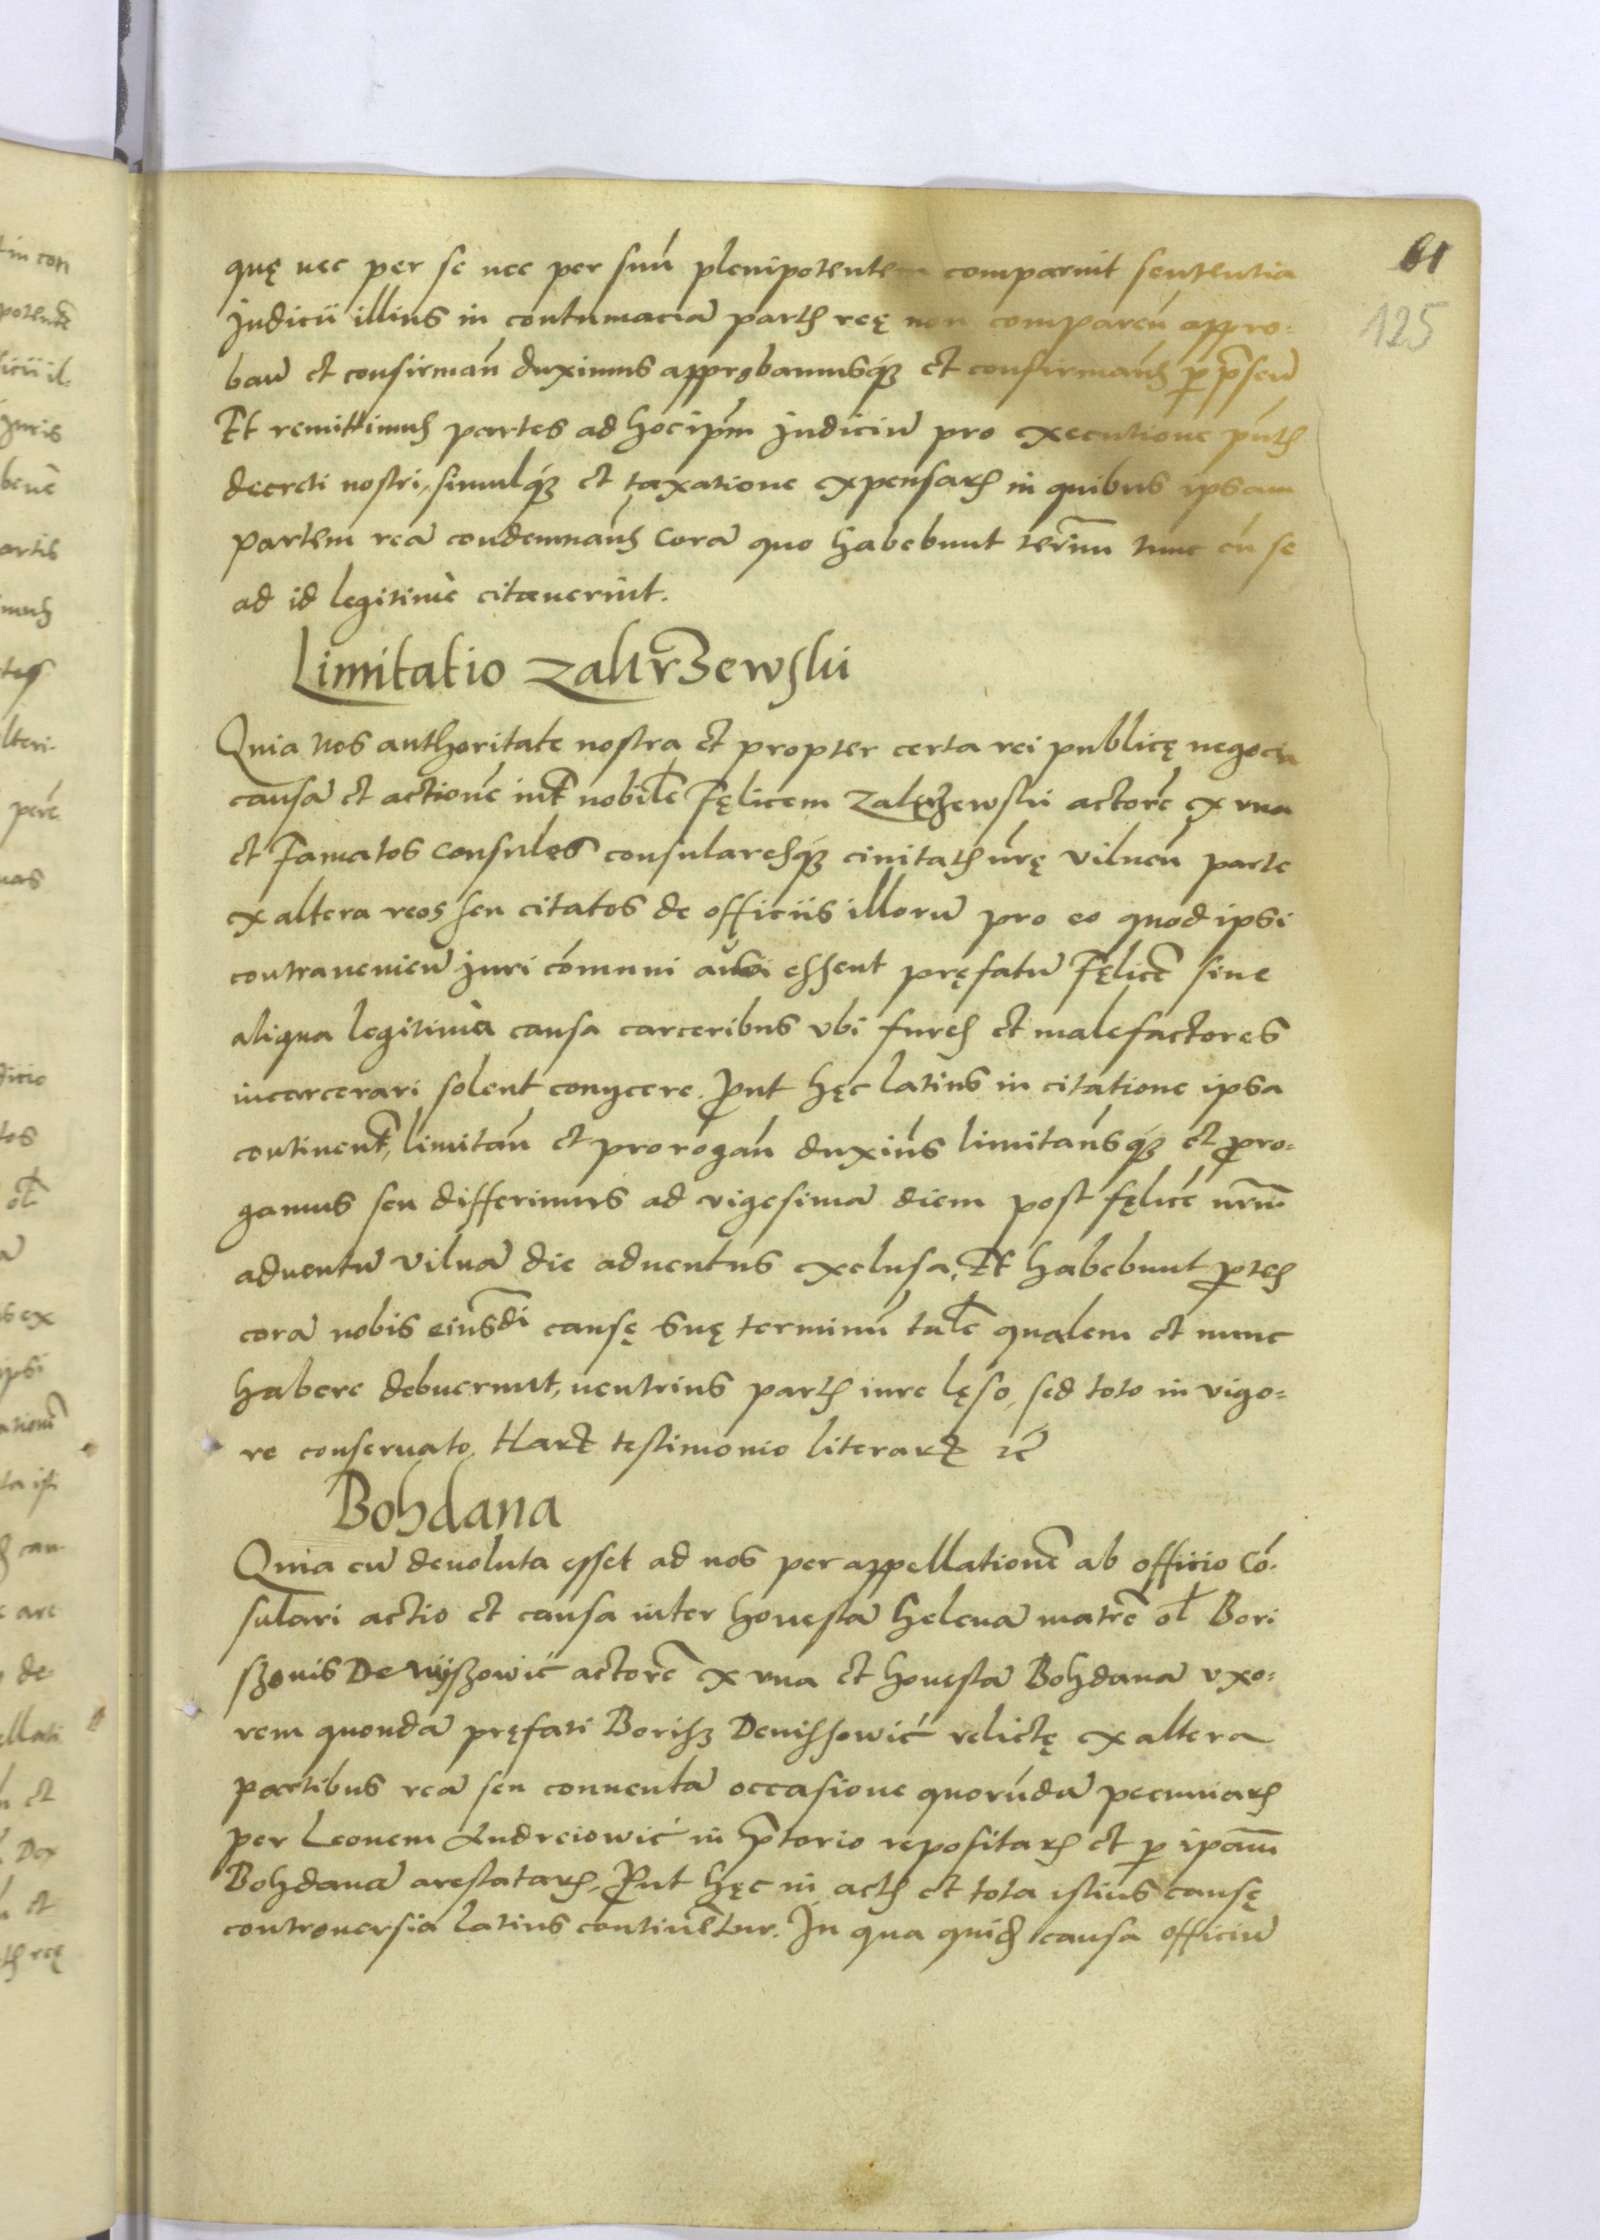 61
125
quę nec per se nec per suū plenipotentem comparuit sententia
Judicii illius in contumaciā partis reę non comparen̄ appro-
ban̄ et confirman̄ duximus approbamusq́ʒ et confirmam̄s p pñsen̄
Et remittimus partes ad hoc ipm̄ Judiciū pro executione pñtis
decreti nostri, simulq́ʒ et taxatione expensarꝫ in quibus ipsam
partem reā condemnam̄s Corā quo habebunt termīn tunc cū se
ad id legitimè citauerint.
Limitatio
Quia Nos authoritate nostra et propter certa rei publicę negocia
causā et actionē int̄ nobilē Fęlicem Zalęrzewski actorē ex vna
et Famatos Consules consularesq́ʒ ciuitatis nr̄ę Vilnen̄ parte
ex altera reos seu citatos de officiis illorū pro eo quod ipsi
contraueniēn Juri cōmuni ausi essent pręfatū Fęlicē sine
aliqua legitima causa carceribus vbi fures et malefactores
incarcerari solent conijcere. Put hęc latius in citatione ipsa
continent̄, limitan̄ et prorogan̄ duxim̄s limitam̄sq́ʒ et pro-
gamus seu differimus ad vigesimā diem post fęlicē nr̄m̄
aduentū Vilnā die aduentus exclusa, Et habebunt ptes
corā nobis eiusdī causę suę terminū talē qualem et nunc
habere debuerunt, neutrius partis iure lęso, sed toto in vigo-
re conseruato. Harꝫ testimonio literarꝫ ꝛc̄
Bohdana
Quia cū deuoluta esset ad nos per appellationē ab officio Cō-
sulari actio et causa inter honestā Helenā matrē ol̄ Bori
szonis actorē ex vna et honestā Bohdanā vxo-
rem quondā pręfati Borisz Denissowić relictę ex altera
partibus reā seu conuentā occasione quorūdā pecuniarꝫ
per Leonem Andreiowić in p̄torio repositarꝫ et p ipam̄
Bohdanā arestatarꝫ, Put hęc in actis et tota istius causę
controuersia latius continētur. In qua quidꝫ causa officiū